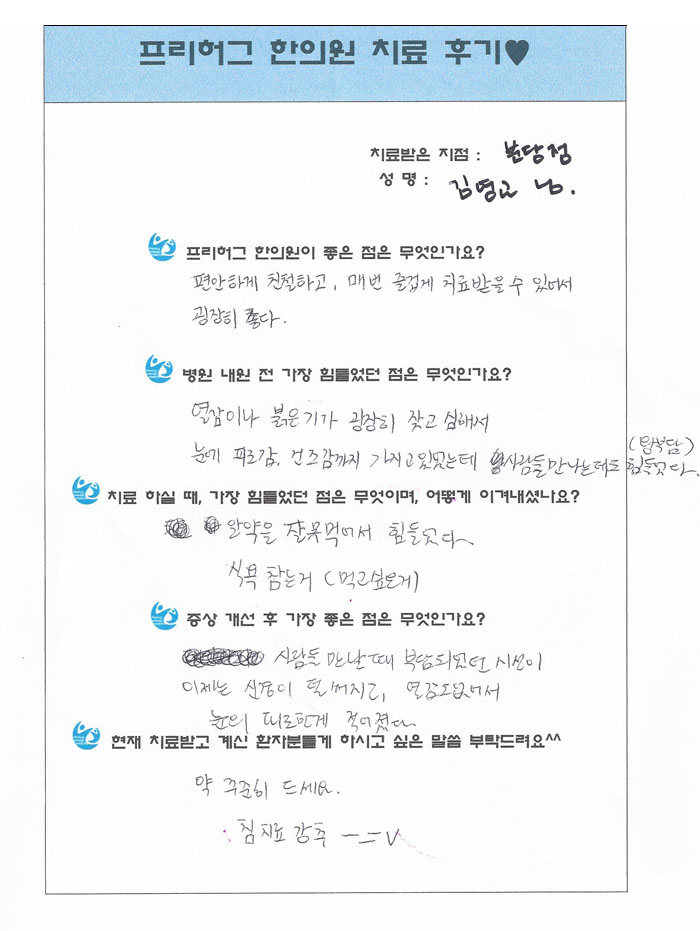 프리허그 한의원 치료 후기♥
치료받은 지점 : 분당점
성 명 : 김영교 님.
프리허그 한의원이 좋은 점은 무엇인가요?
편안하게 친절하고, 매번 즐겁게 치료받을 수 있어서
굉장히 좋다.
병원 내원 전 가장 힘들었던 점은 무엇인가요?
열감이나 붉은기가 굉장히 잦고 심해서
(부담)
눈에 피로감, 건조감까지 가지고있었는데 사람들만나는데도 힘들었다.
치료 하실 때, 가장 힘들었던 점은 무엇이며, 어떻게 이겨내셨나요?
알약을 잘못먹어서 힘들었다
식욕 참는거 (먹고싶은거)
증상 개선 후 가장 좋은 점은 무엇인가요?
사람들 만날때 부담되었던 시선이
이제는 신경이 덜써지고, 열감도없어서
눈의 피로한게 적어졌다.
현재 치료받고 계신 환자분들게 하시고 싶은 말씀 부탁드려요^^
약 꾸준히 드세요.
침치료 강추 ㅡ=V